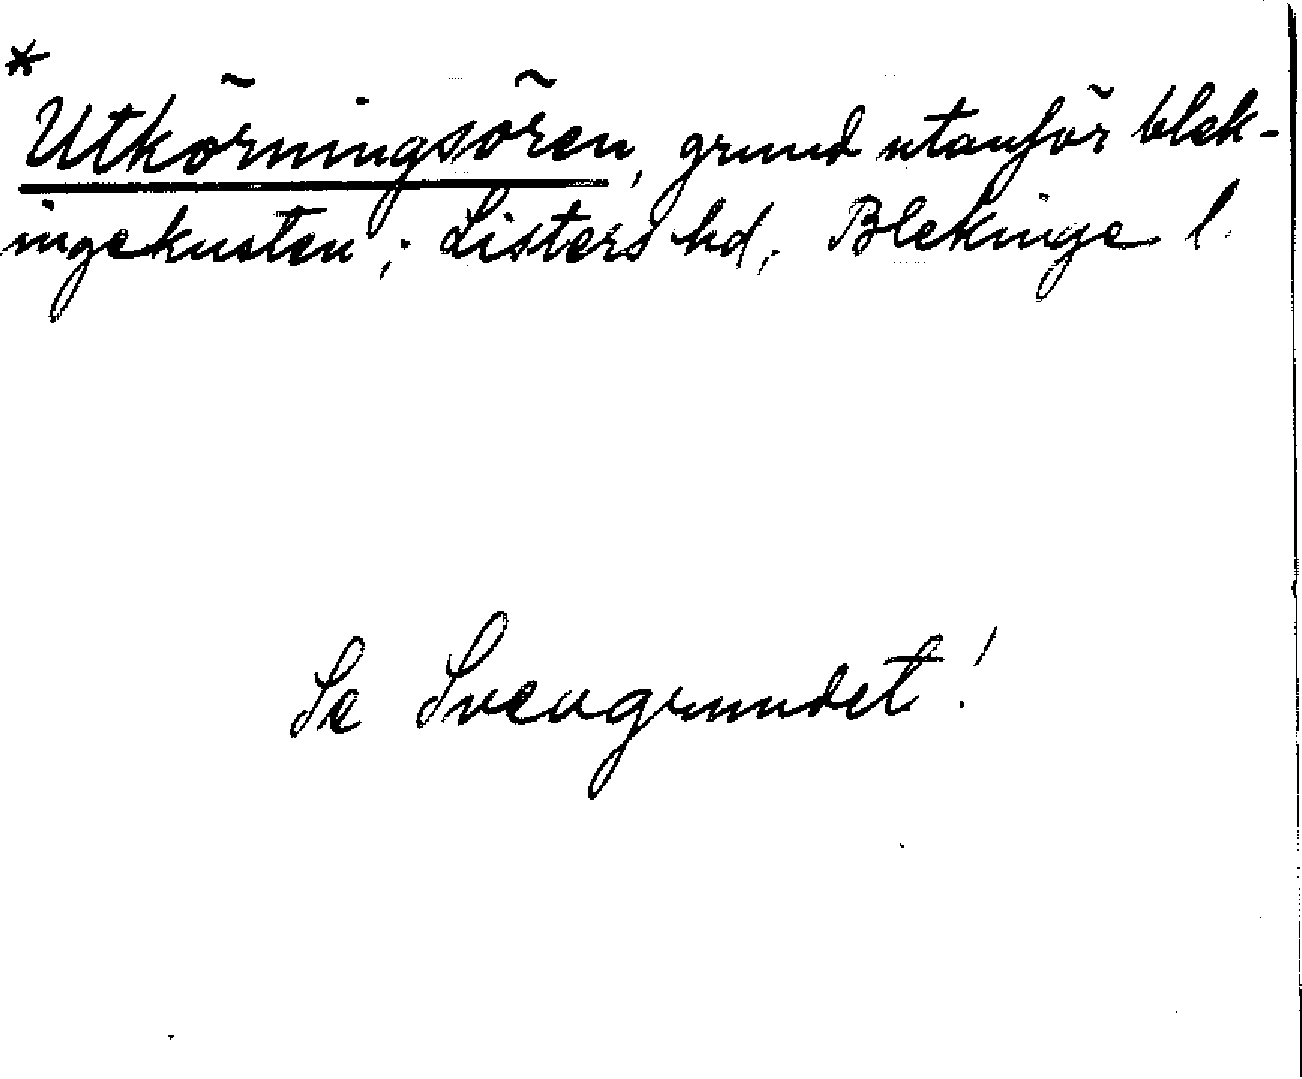 *
Utkörningsören, grund utanför blek-
ingekusten; Listers hd, Blekinge l.
Se Svengrundet!